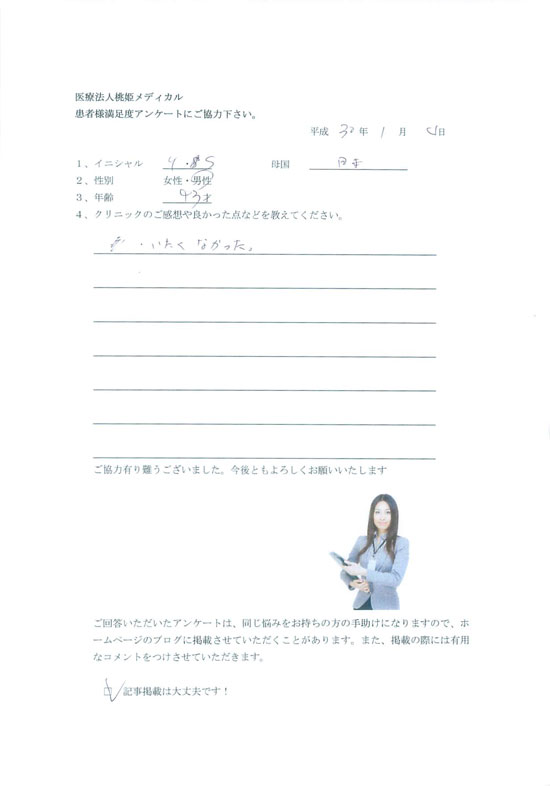 医療法人桃姫メディカル
患者様満足度アンケートにご協力下さい。
平成 30 年 1 月 日
1、イニシャル Y・S 母国 日本
2、性別 女性・男性
3、年齢 43才
4、クリニックのご感想や良かった点などを教えてください。
・いたくなかった。
ご協力有り難うございました。今後ともよろしくお願いいたします
ご回答いただいたアンケートは、同じ悩みをお持ちの方の手助けになりますので、ホ
ームページのブログに掲載させていただくことがあります。また、掲載の際には有用
なコメントをつけさせていただきます。
□ 記事掲載は大丈夫です！